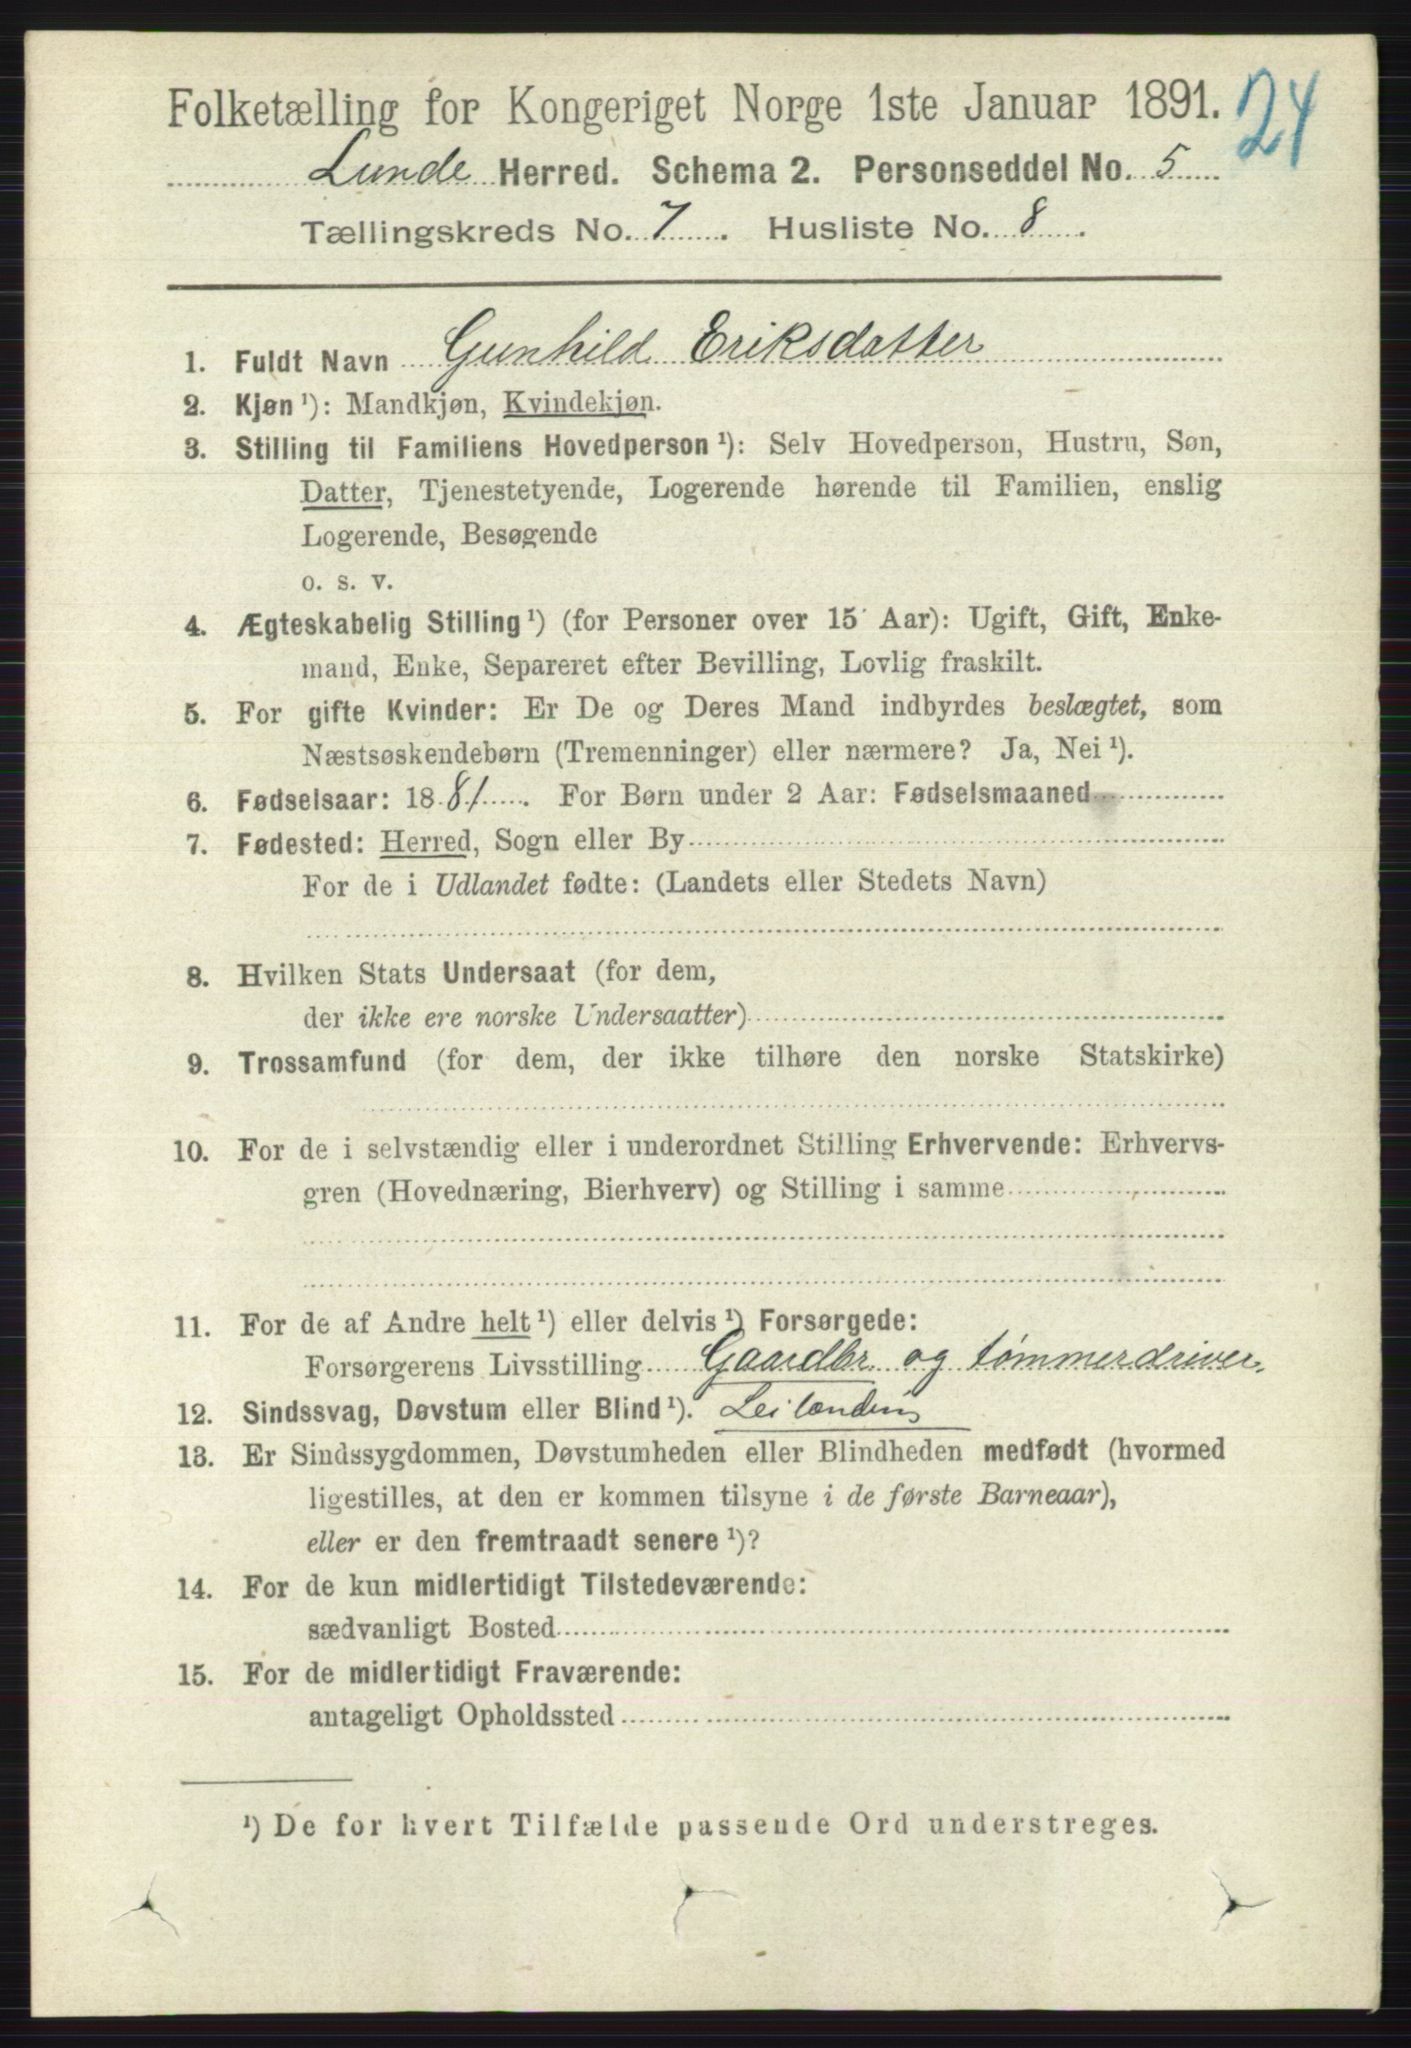 Folketælling for Kongeriget Norge 1ste Januar 1891. 24
Lunde Herred. Schema 2. Personseddel No. 5
Tællingskreds No. 7. Husliste No. 8.
1. Fuldt Navn Gunhild Eriksdatter
2. Kjøn ¹): Mandkjøn, Kvindekjøn.
3. Stilling til Familiens Hovedperson ¹): Selv Hovedperson, Hustru, Søn,
Datter, Tjenestetyende, Logerende hørende til Familien, enslig
Logerende, Besøgende
o. s. v.
4. Ægteskabelig Stilling ¹) (for Personer over 15 Aar): Ugift, Gift, Enke-
mand, Enke, Separeret efter Bevilling, Lovlig fraskilt.
5. For gifte Kvinder: Er De og Deres Mand indbyrdes beslægtet, som
Næstsøskendebørn (Tremenninger) eller nærmere? Ja, Nei ¹).
6. Fødselsaar: 1881. For Børn under 2 Aar: Fødselsmaaned
7. Fødested: Herred, Sogn eller By
For de i Udlandet fødte: (Landets eller Stedets Navn)
8. Hvilken Stats Undersaat (for dem,
der ikke ere norske Undersaatter)
9. Trossamfund (for dem, der ikke tilhøre den norske Statskirke)
10. For de i selvstændig eller i underordnet Stilling Erhvervende: Erhvervs-
gren (Hovednæring, Bierhverv) og Stilling i samme
11. For de af Andre helt ¹) eller delvis ¹) Forsørgede:
Forsørgerens Livsstilling Gaardbr. og tømmerdriver.
12. Sindssvag, Døvstum eller Blind ¹). Leilænding
13. Er Sindssygdommen, Døvstumheden eller Blindheden medfødt (hvormed
ligestilles, at den er kommen tilsyne i de første Barneaar),
eller er den fremtraadt senere ¹)?
14. For de kun midlertidigt Tilstedeværende:
sædvanligt Bosted
15. For de midlertidigt Fraværende:
antageligt Opholdssted
¹) De for hvert Tilfælde passende Ord understreges.